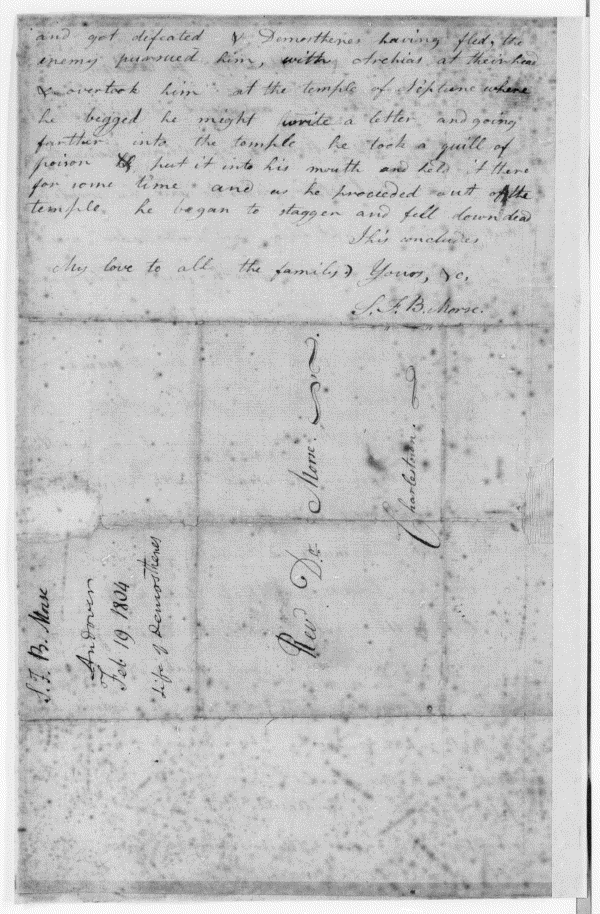 and got defeated & Demosthenes having fled, the
enemy pursued him, with Archias at their head
& overtook him at the temple of Neptune where
he begged he might write a letter, and going
farther into the temple he took a quill of
poison & put it into his mouth and held it there
for some time and as he proceeded out of the
temple he began to stagger and fell down dead
This concludes
My love to all the family Yours, &c,
S. F. B. Morse.
Rev. Dr. Morse.
Charlestown.
S. F. B. Morse
Andover
Feb 19 1804
Life of Demosthenes